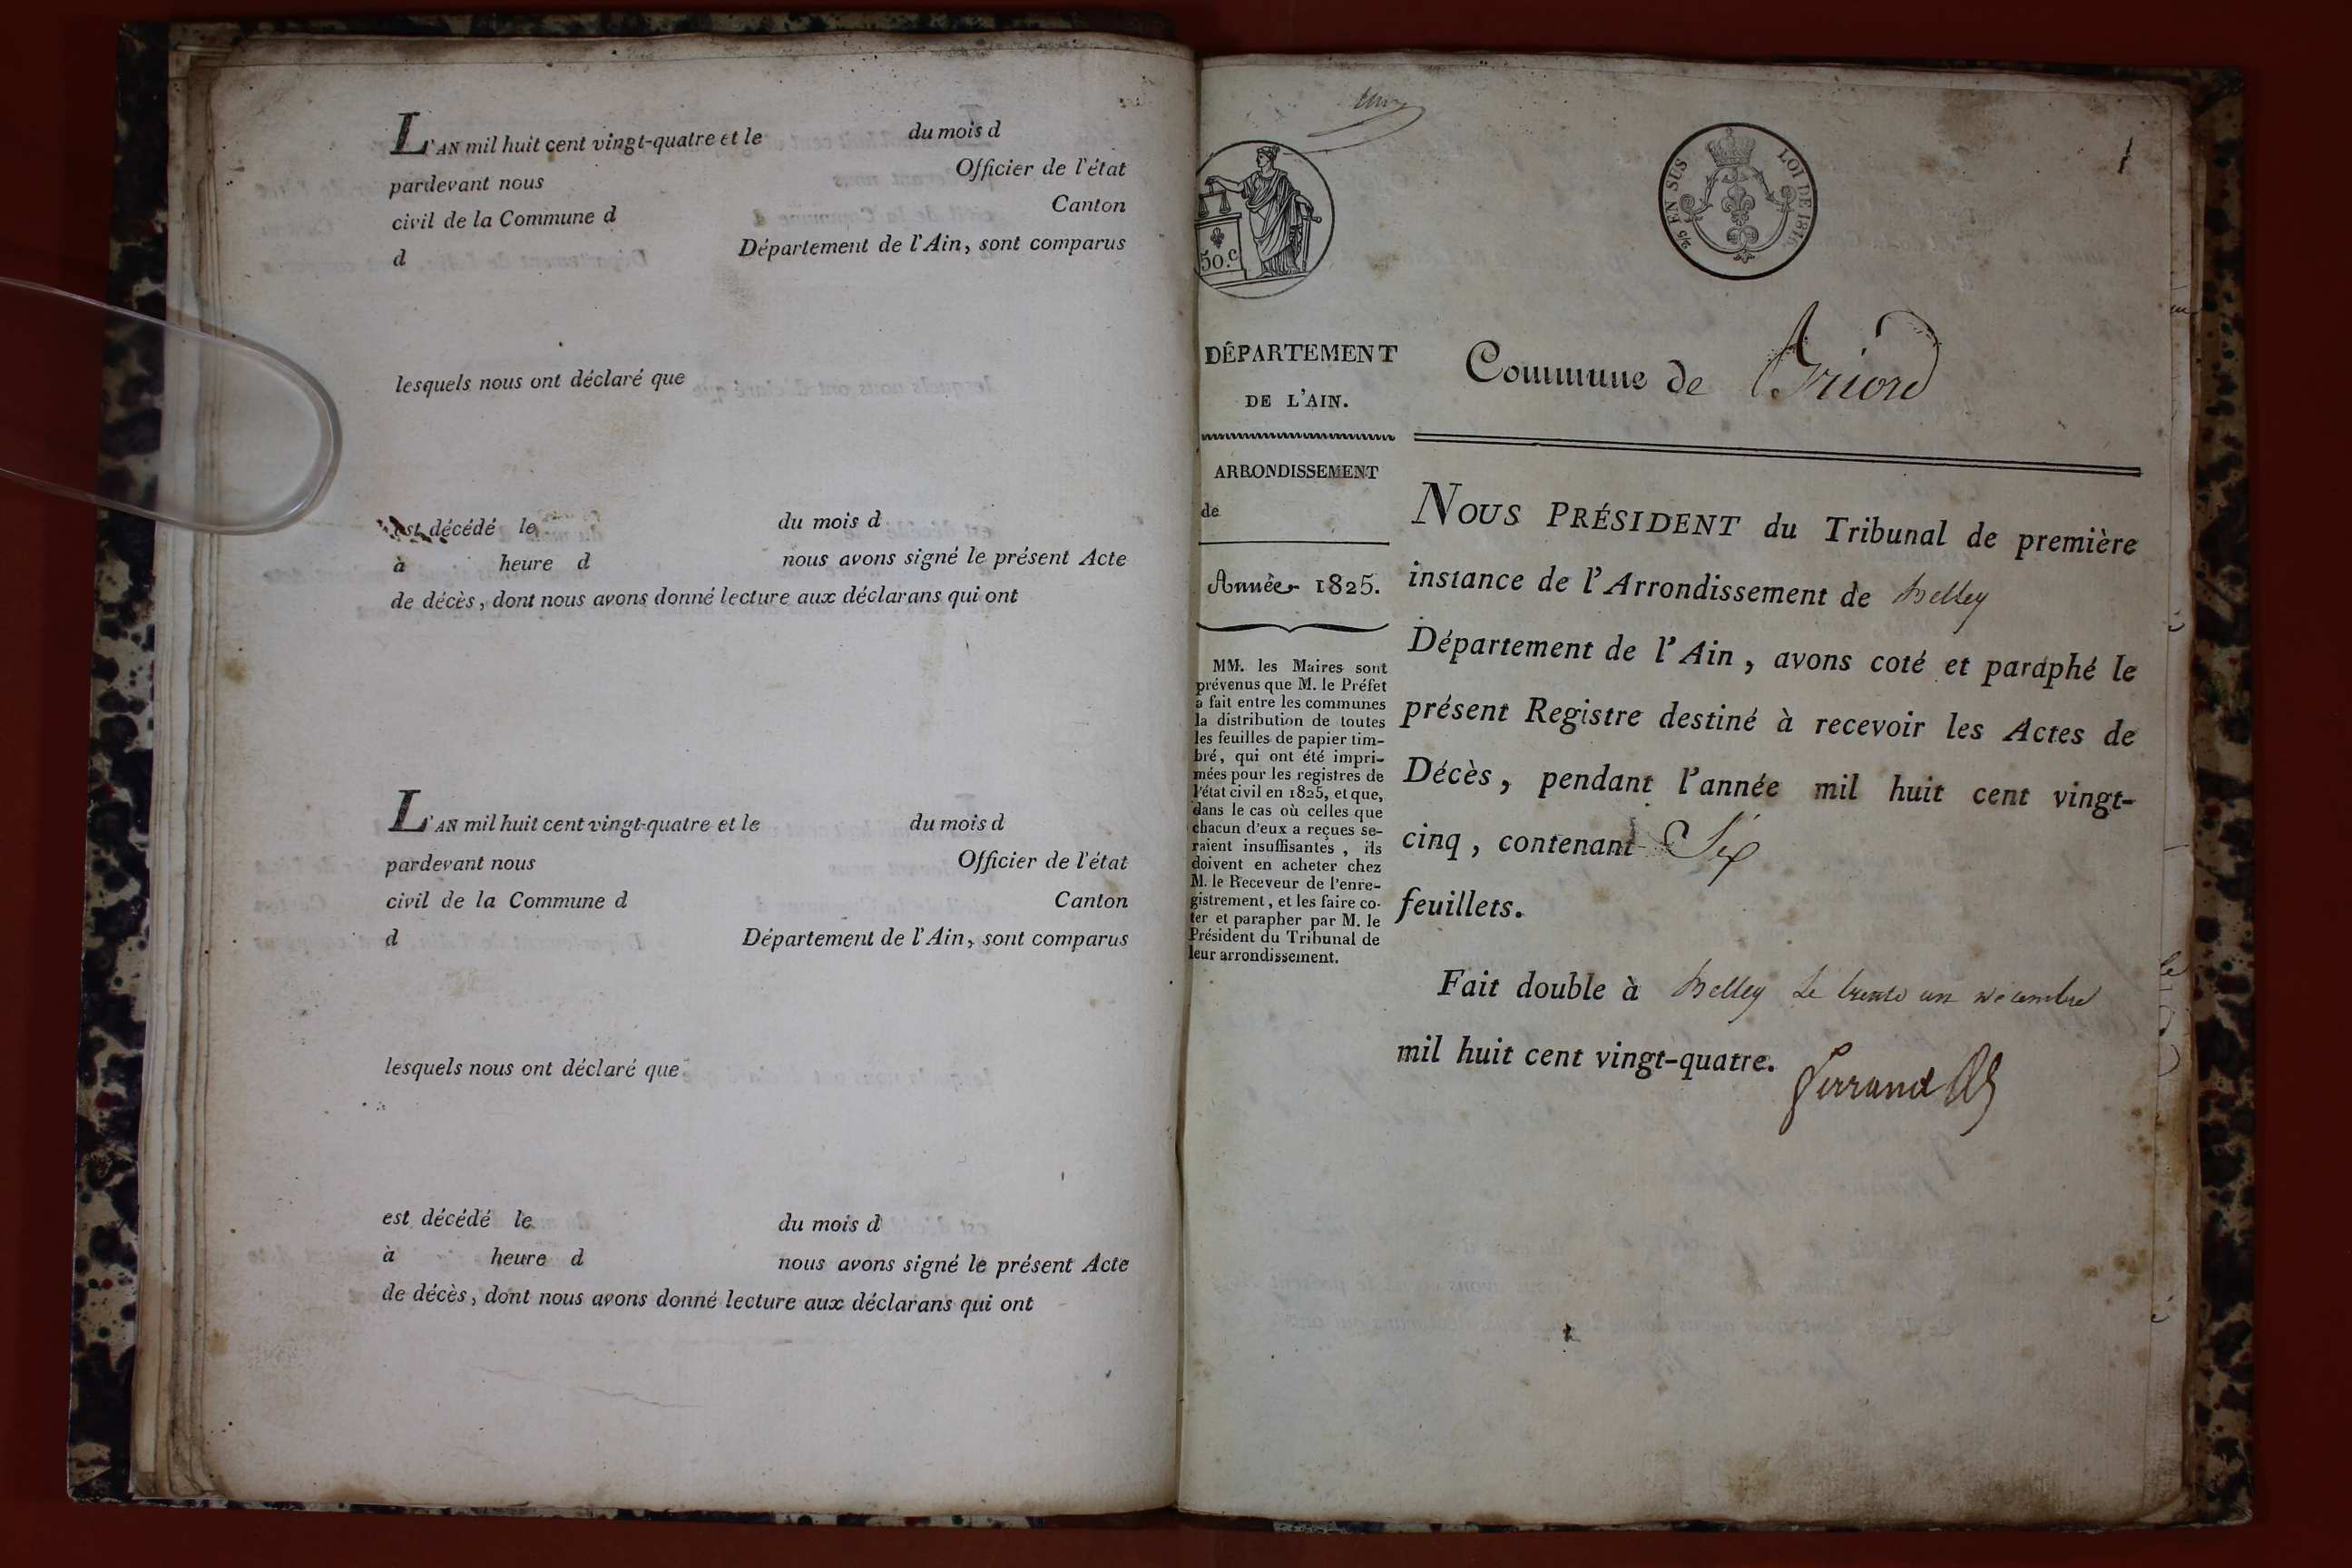 L'AN mil huit cent vingt-quatre et le du mois d
pardevant nous Officier de l'état
civil de la Commune d Canton
d Département de l'Ain, sont comparus
lesquels nous ont déclaré que
est décédé le du mois d
à heure d nous avons signé le présent Acte
de décès, dont nous avons donné lecture aux déclarans qui ont
L'AN mil huit cent vingt-quatre et le du mois d
pardevant nous Officier de l'état
civil de la Commune d Canton
d Département de l'Ain, sont comparus
lesquels nous ont déclaré que
est décédé le du mois d
à heure d nous avons signé le présent Acte
de décès, dont nous avons donné lecture aux déclarans qui ont
1
50.c
2/5 EN SUS LOI DE 1816
DÉPARTEMENT
DE L'AIN.
ARRONDISSEMENT
de
Année 1825.
MM. les Maires sont
prévenus que M. le Préfet
a fait entre les communes
la distribution de toutes
les feuilles de papier tim-
bré, qui ont été impri-
mées pour les registres de
l'état civil en 1825, et que,
dans le cas où celles que
chacun d'eux a reçues se-
raient insuffisantes, ils
doivent en acheter chez
M. le Receveur de l'enre-
gistrement, et les faire co-
ter et parapher par M. le
Président du Tribunal de
leur arrondissement.
Commune de Briord
NOUS PRÉSIDENT du Tribunal de première
instance de l'Arrondissement de Belley
Département de l'Ain, avons coté et paraphé le
présent Registre destiné à recevoir les Actes de
Décès, pendant l'année mil huit cent vingt-
cinq, contenant Six
feuillets.
Fait double à Belley le trente un décembre
mil huit cent vingt-quatre.